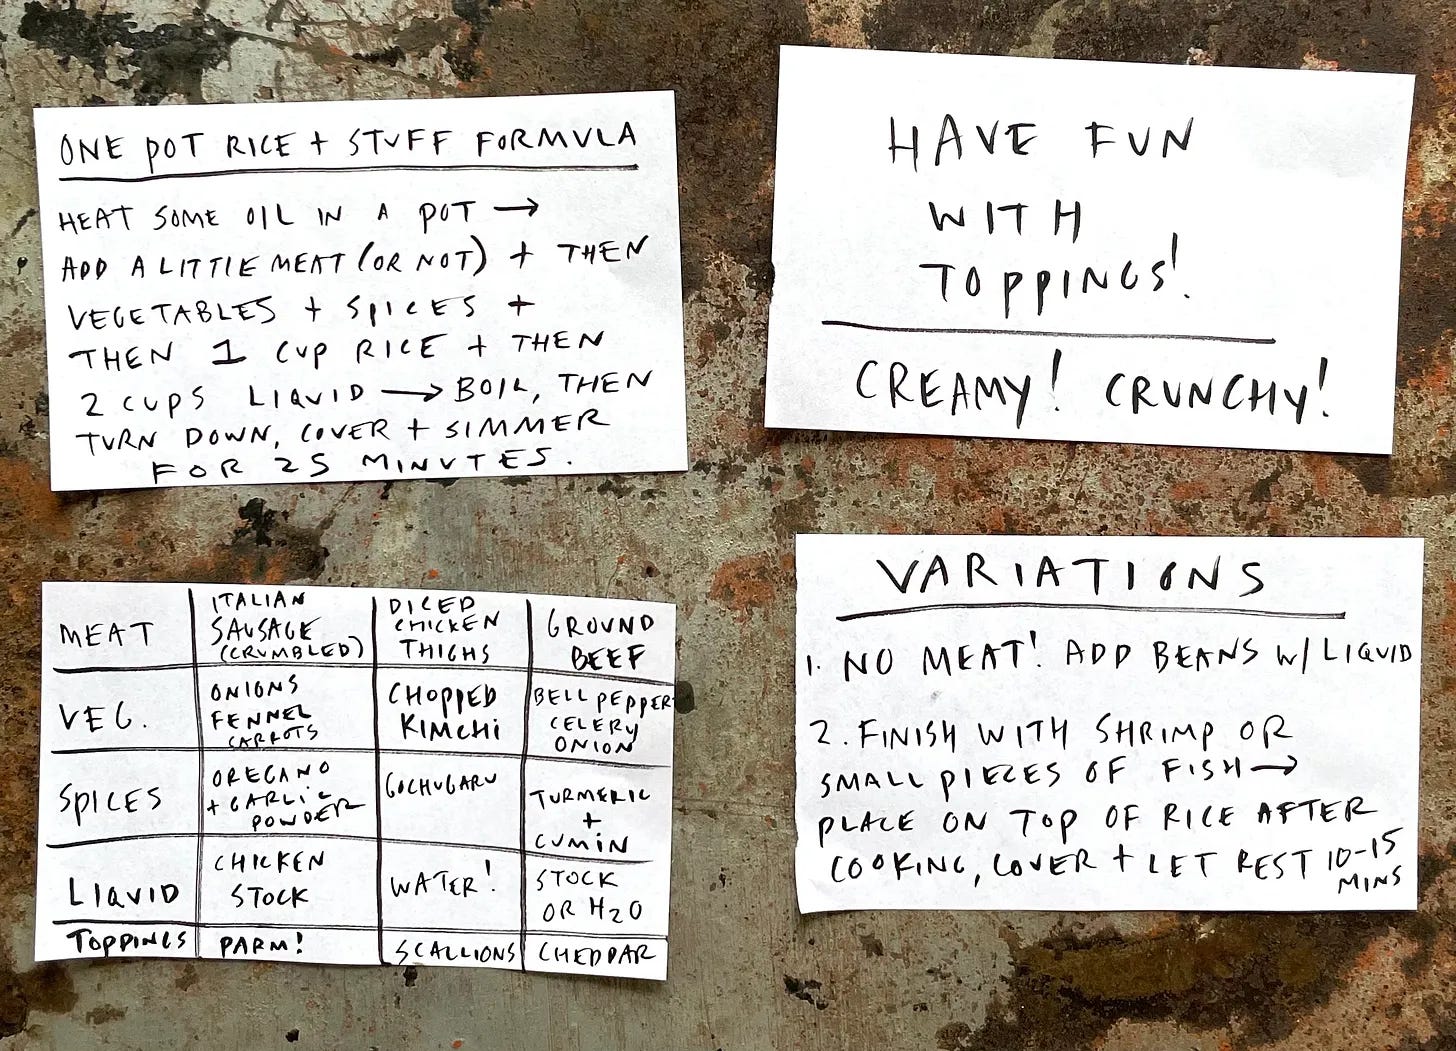 ONE POT RICE + STUFF FORMULA
HEAT SOME OIL IN A POT →
ADD A LITTLE MEAT (OR NOT) + THEN
VEGETABLES + SPICES +
THEN 1 CUP RICE + THEN
2 CUPS LIQUID → BOIL, THEN
TURN DOWN, COVER + SIMMER
FOR 25 MINUTES.
HAVE FUN
WITH
TOPPINGS!
CREAMY! CRUNCHY!
MEAT
ITALIAN
SAUSAGE
(CRUMBLED)
DICED
CHICKEN
THIGHS
GROUND
BEEF
VEG.
ONIONS
FENNEL
CARROTS
CHOPPED
KIMCHI
BELL PEPPER
CELERY
ONION
SPICES
OREGANO
+ GARLIC
POWDER
GOCHUGARU
TURMERIC
+
CUMIN
LIQUID
CHICKEN
STOCK
WATER!
STOCK
OR H2O
TOPPINGS
PARM!
SCALLIONS
CHEDDAR
VARIATIONS
1. NO MEAT! ADD BEANS W/ LIQUID
2. FINISH WITH SHRIMP OR
SMALL PIECES OF FISH →
PLACE ON TOP OF RICE AFTER
COOKING, COVER + LET REST 10-15
MINS